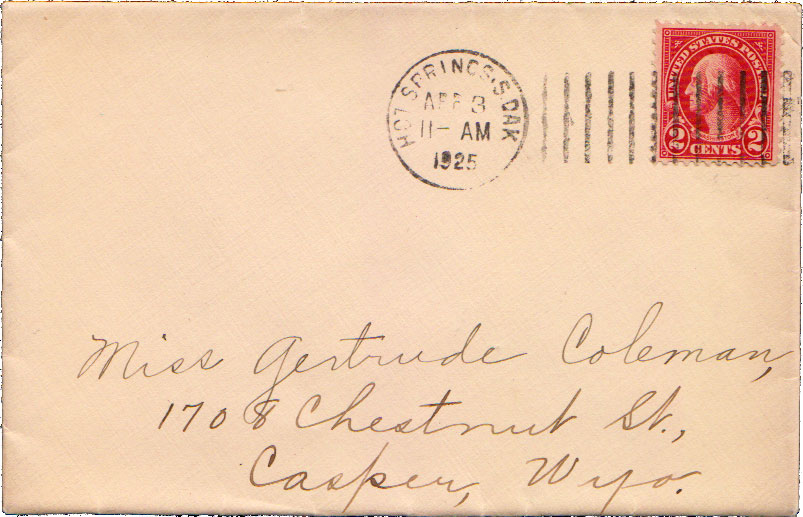 HOT SPRINGS, S. DAK
APR 3
11- AM
1925
UNITED STATES POSTAGE
2 CENTS 2
Miss Gertrude Coleman,
1708 Chestnut St.,
Casper, Wyo.